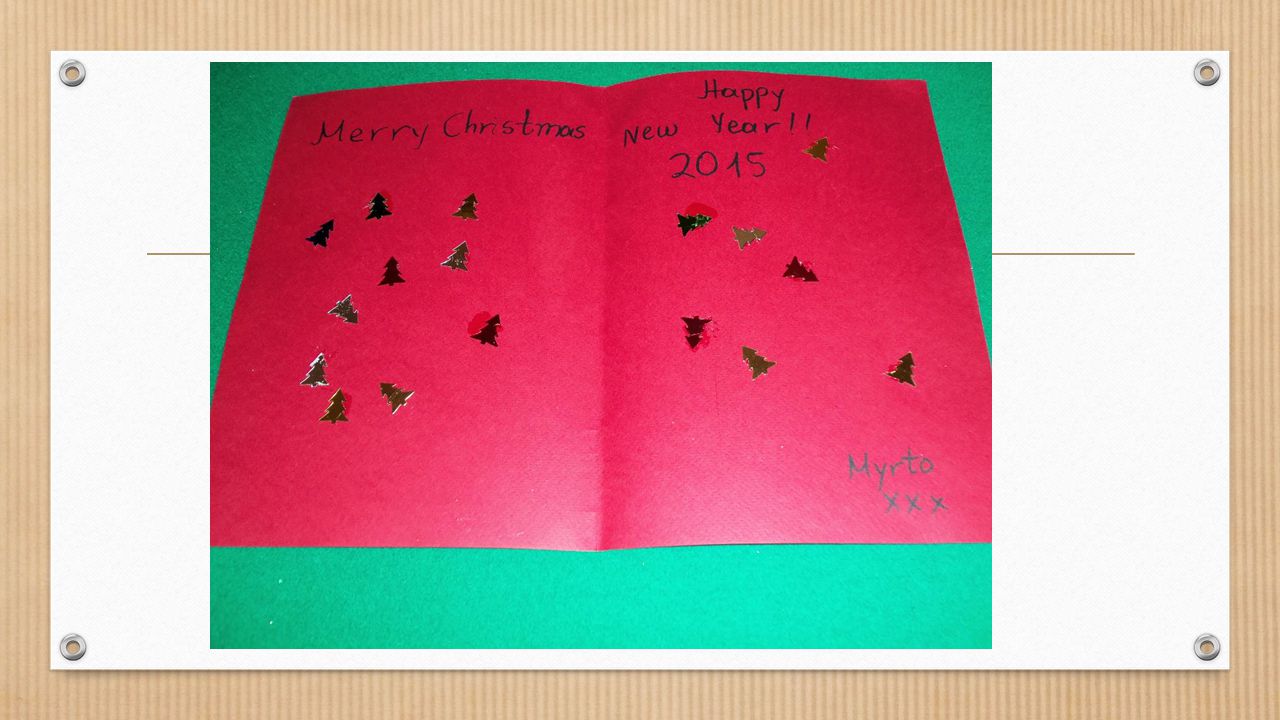 Merry Christmas
Happy
New Year!!
2015
Myrto
xxx